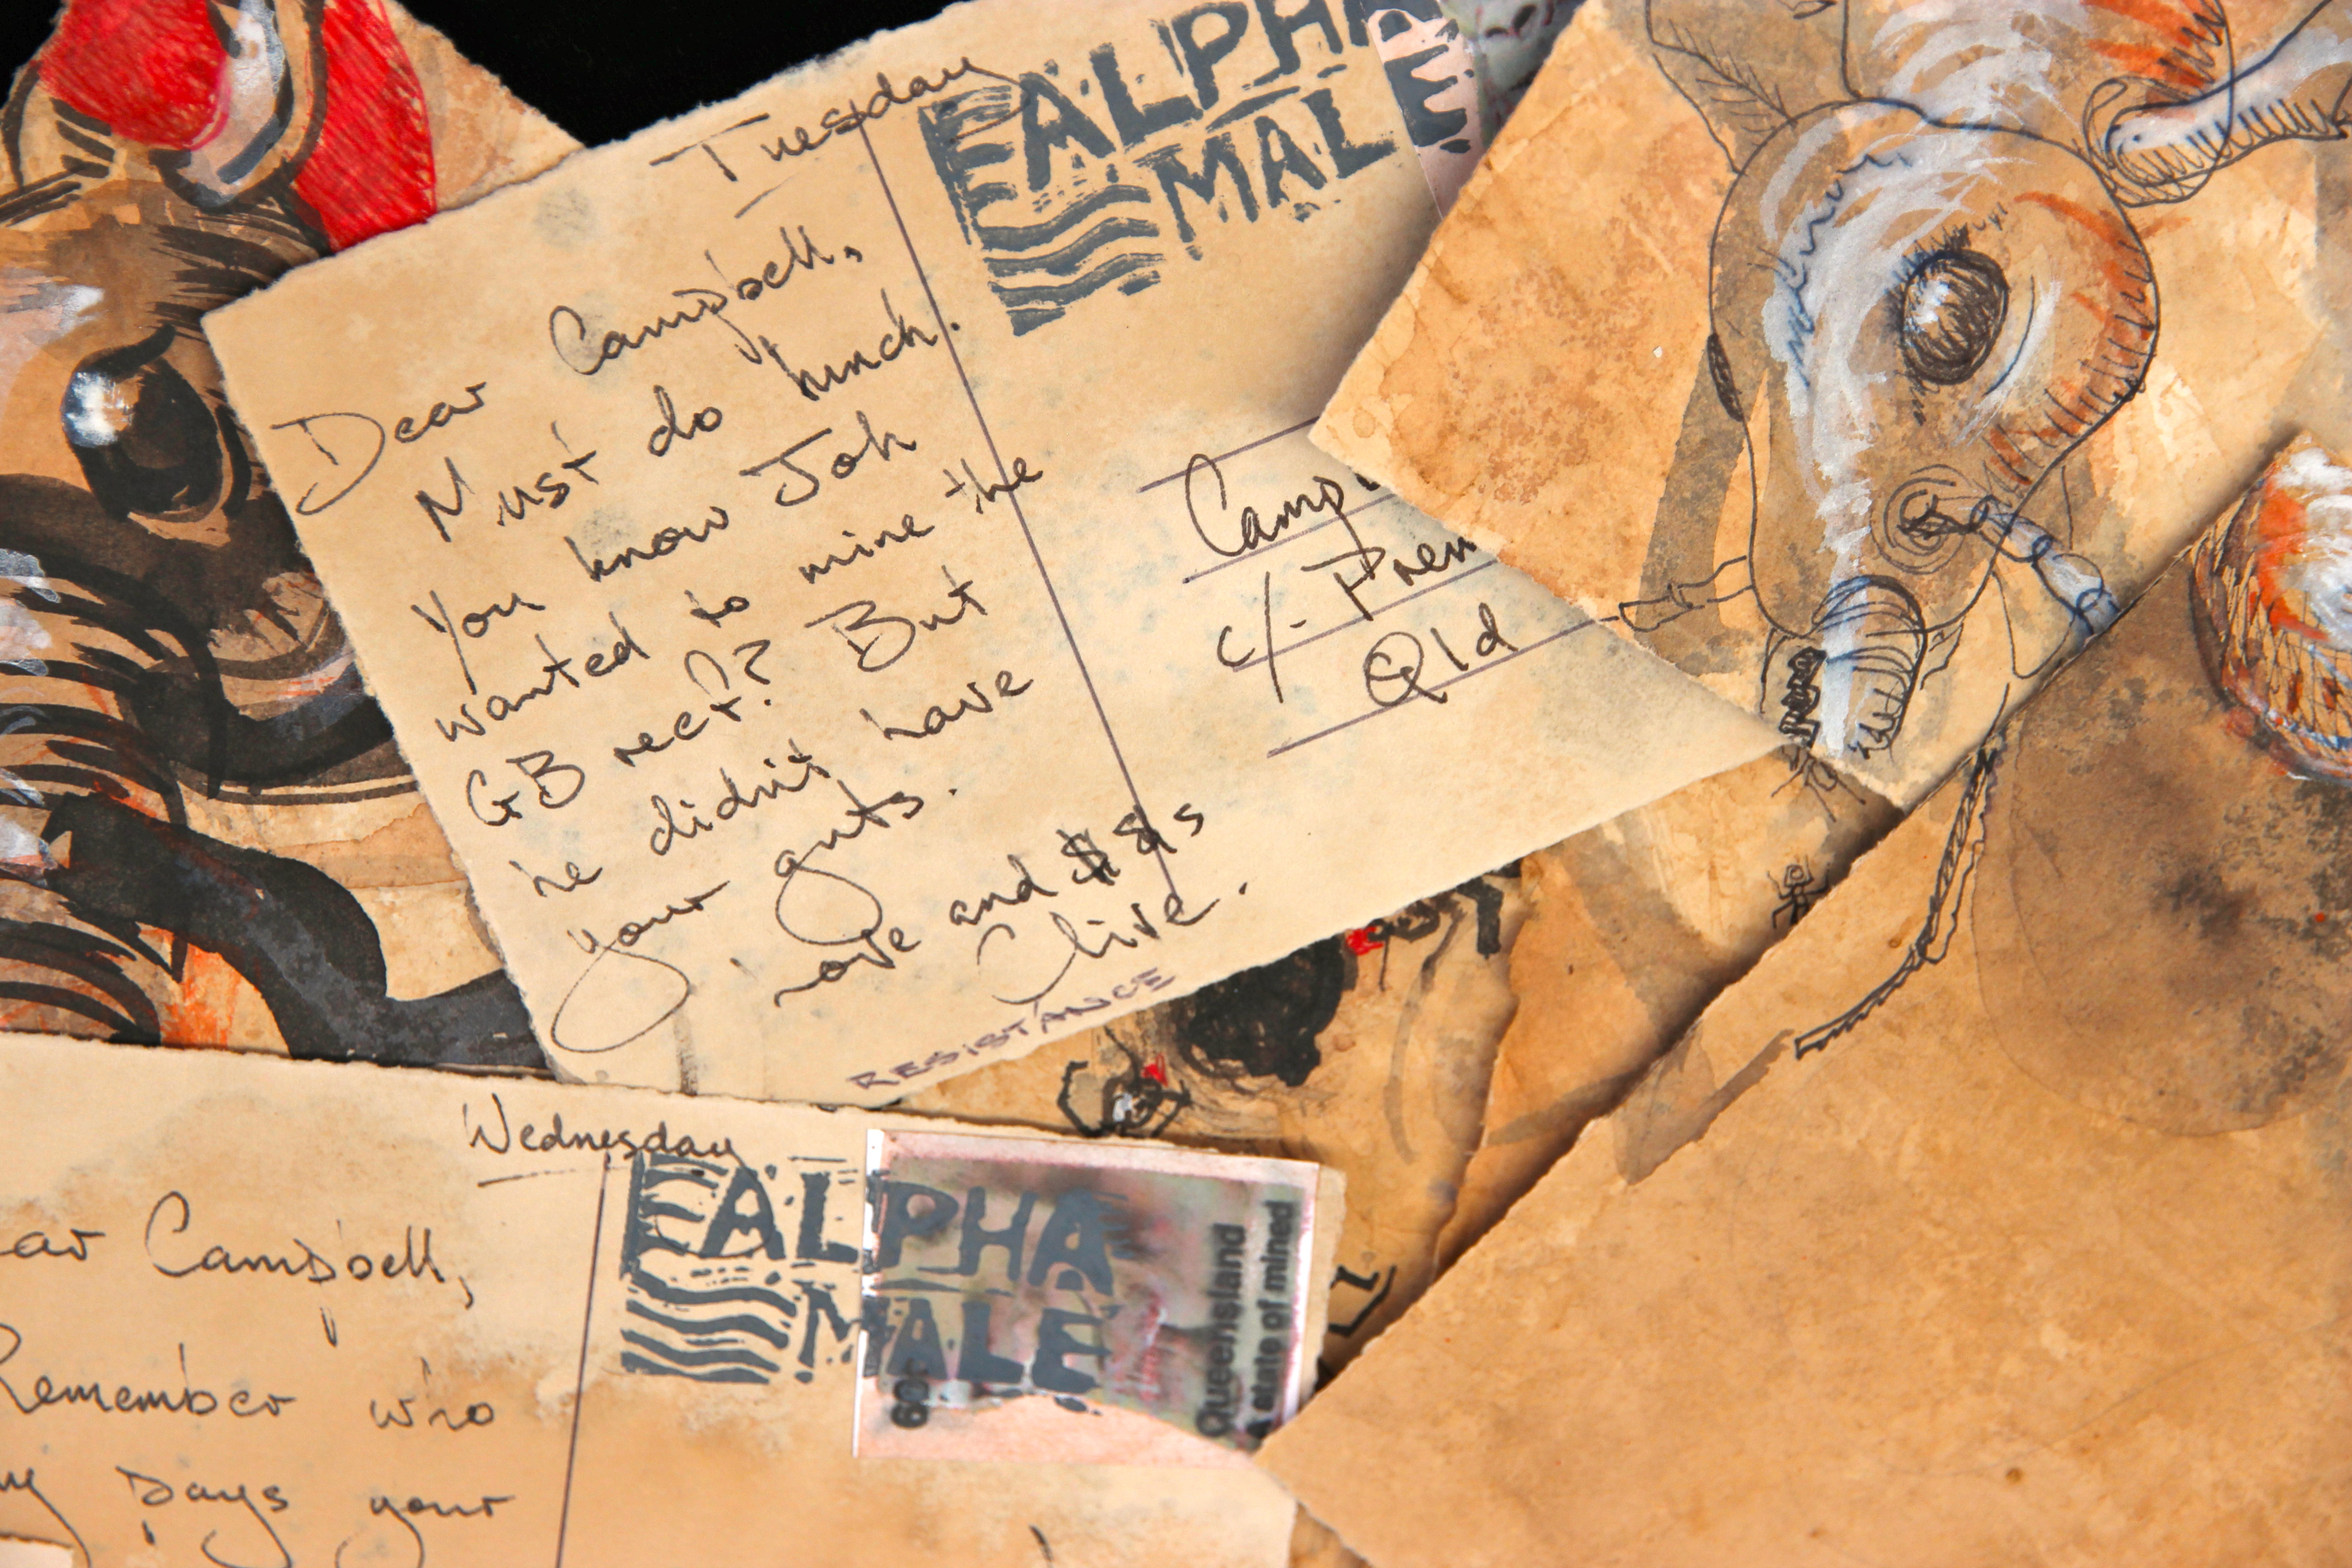 Tuesday
EALPHA
MALE
Dear Campbell,
Must do lunch.
You know Joh
wanted to mine the
GB reef? But
he didn't have
your guts.
love and $$s
Clive.
RESISTANCE
Camp
c/- Prem
Qld
Wednesday
EALPHA
MALE
60c
Queensland
A state of mined
ar Campbell,
Remember who
pays your